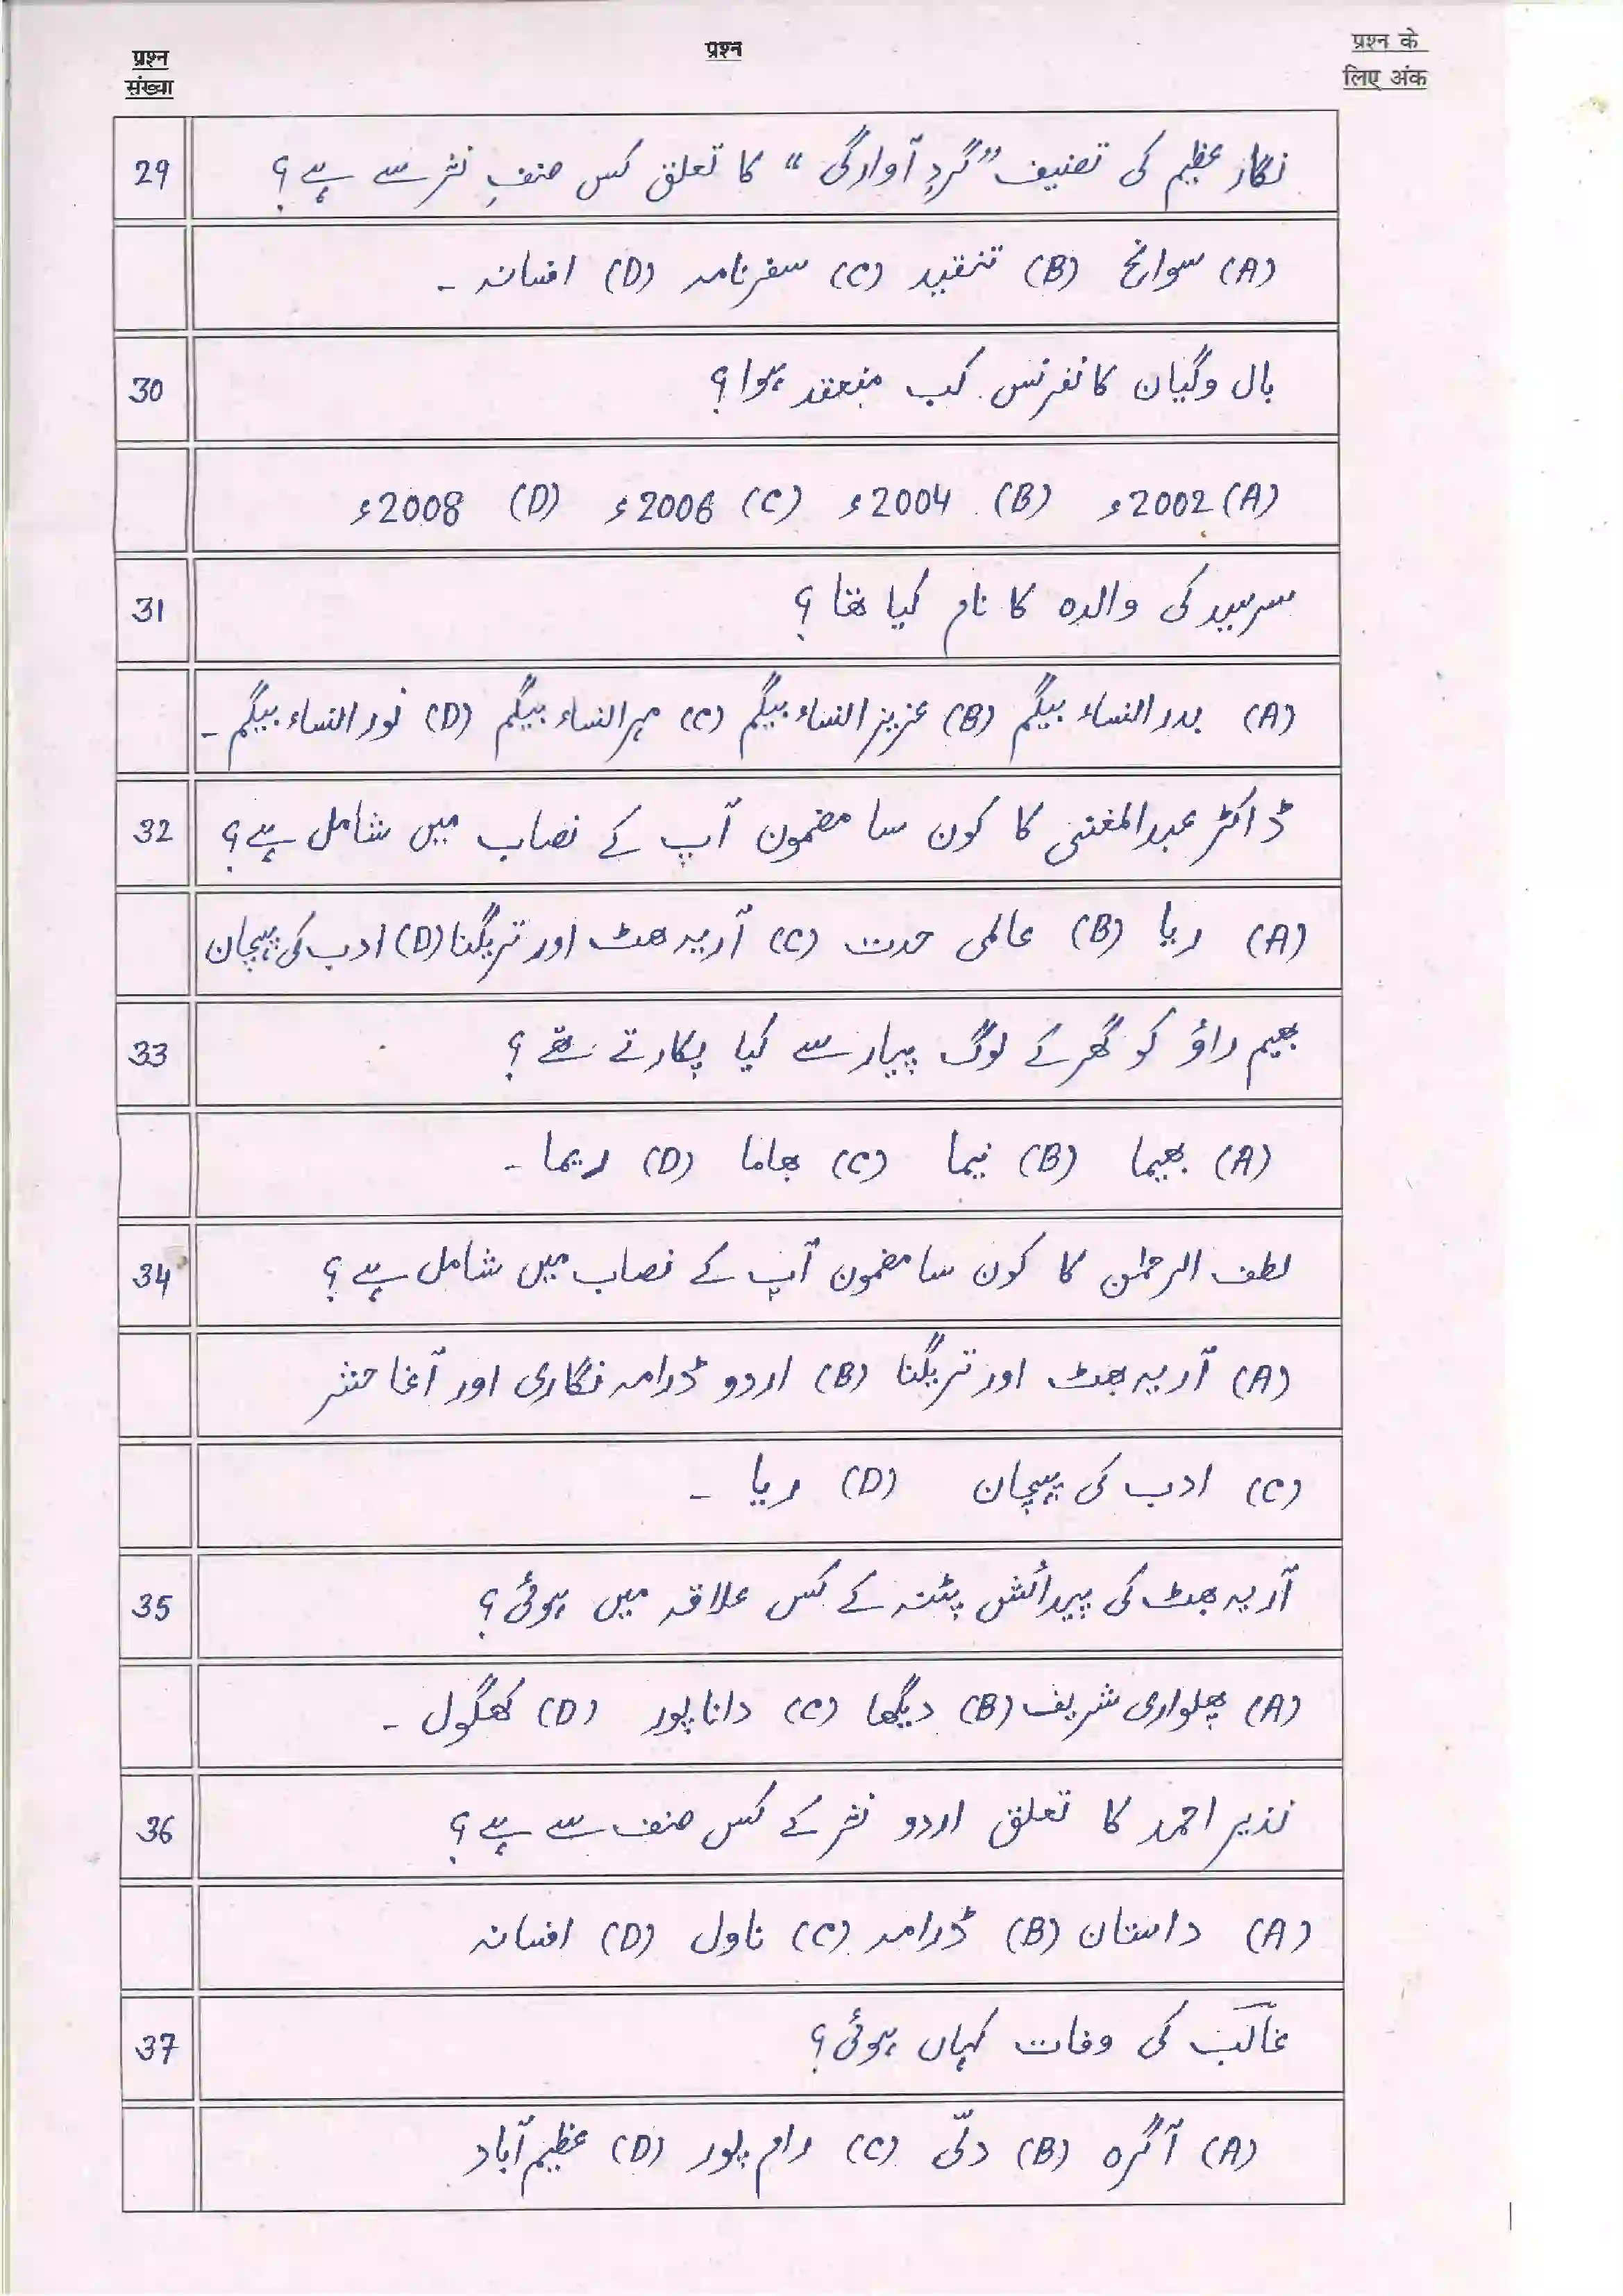 प्रश्न संख्या
प्रश्न
प्रश्न के लिए अंक
29 نگار عظیم کی تصنیف "گردِ آوارگی" کا تعلق کس صنفِ نثر سے ہے؟
(A) سوانح (B) تنقید (C) سفرنامہ (D) افسانہ ۔
30 بال وگیان کانفرنس کب منعقد ہوا؟
(A) 2002ء (B) 2004ء (C) 2006ء (D) 2008ء
31 سرسید کی والدہ کا نام کیا تھا؟
(A) بدرالنساء بیگم (B) عزیز النساء بیگم (C) مہرالنساء بیگم (D) نورالنساء بیگم ۔
32 ڈاکٹر عبدالمغنی کا کون سا مضمون آپ کے نصاب میں شامل ہے؟
(A) ریا (B) عالمی حدت (C) آریہ بھٹ اور تریگنا (D) ادب کی پہچان
33 بھیم راؤ کو گھر کے لوگ پیار سے کیا پکارتے تھے؟
(A) بھیما (B) نیما (C) بھاما (D) ریما ۔
34 لطف الرحمٰن کا کون سا مضمون آپ کے نصاب میں شامل ہے؟
(A) آریہ بھٹ اور تریگنا (B) اردو ڈرامہ نگاری اور آغا حشر
(C) ادب کی پہچان (D) ریا ۔
35 آریہ بھٹ کی پیدائش پٹنہ کے کس علاقہ میں ہوئی؟
(A) پھلواری شریف (B) دیگھا (C) داناپور (D) کھگول ۔
36 نذیر احمد کا تعلق اردو نثر کے کس صنف سے ہے؟
(A) داستان (B) ڈرامہ (C) ناول (D) افسانہ
37 غالب کی وفات کہاں ہوئی؟
(A) آگرہ (B) دلّی (C) رام پور (D) عظیم آباد